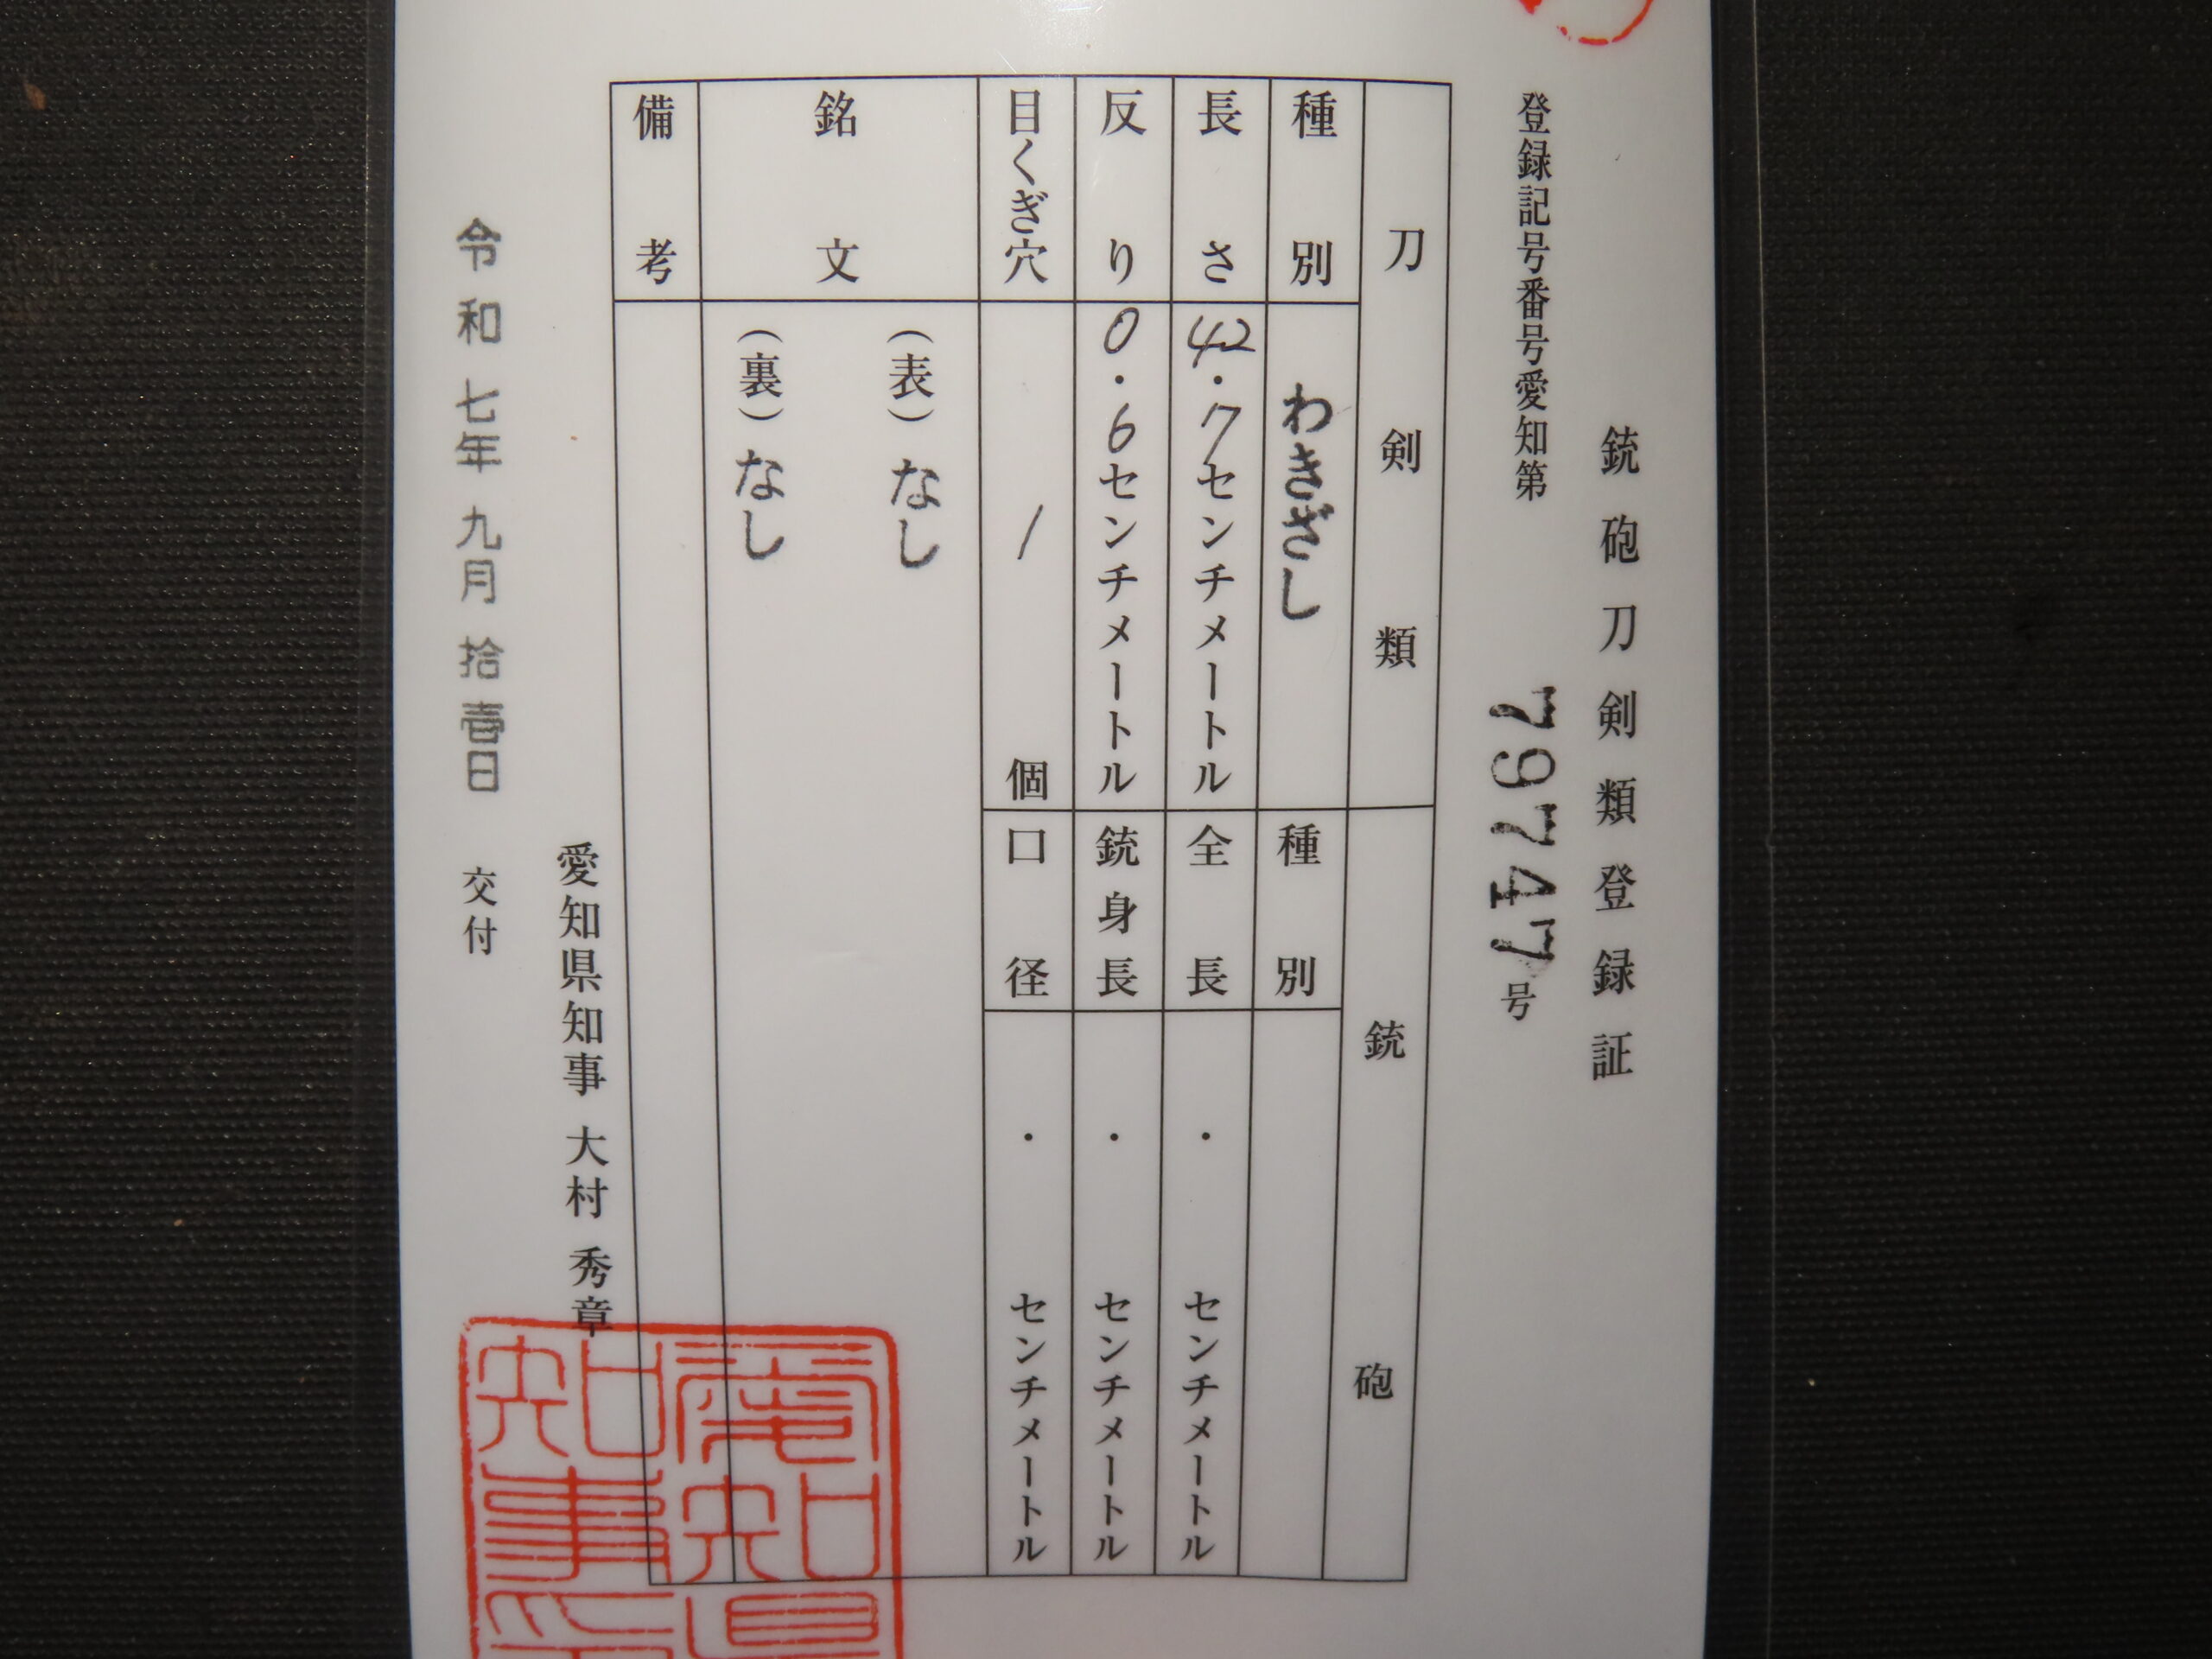 銃砲刀剣類登録証
登録記号番号愛知第 79747 号
刀剣類
銃砲
種別 わきざし
種別
長さ 42.7センチメートル
全長 ・ センチメートル
反り 0.6センチメートル
銃身長 ・ センチメートル
目くぎ穴 1 個
口径 ・ センチメートル
銘文
(表)なし
(裏)なし
備考
愛知県知事 大村 秀章
令和 七年 九月 拾壱日 交付
愛知県
知事印